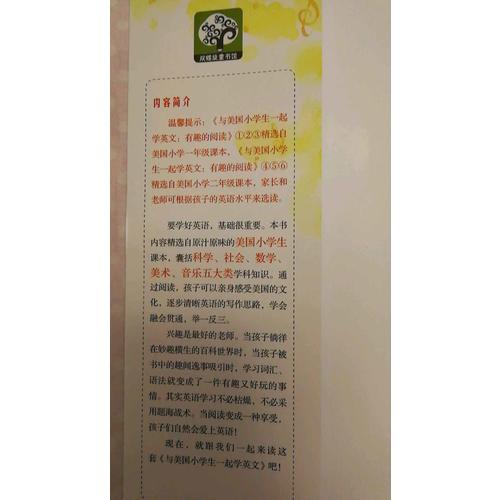 双螺旋童书馆
内容简介
温馨提示：《与美国小学生一起
学英文：有趣的阅读》①②③精选自
美国小学一年级课本，《与美国小学
生一起学英文：有趣的阅读》④⑤⑥
精选自美国小学二年级课本，家长和
老师可根据孩子的英语水平来选读。
要学好英语，基础很重要。本书
内容精选自原汁原味的美国小学生
课本，囊括科学、社会、数学、
美术、音乐五大类学科知识。通
过阅读，孩子可以亲身感受美国的文
化，逐步清晰英语的写作思路，学会
融会贯通，举一反三。
兴趣是最好的老师。当孩子徜徉
在妙趣横生的百科世界时，当孩子被
书中的趣闻逸事吸引时，学习词汇、
语法就变成了一件有趣又好玩的事
情。其实英语学习不必枯燥，不必采
用题海战术。当阅读变成一种享受，
孩子们自然会爱上英语！
现在，就跟我们一起来读这
套《与美国小学生一起学英文》吧！